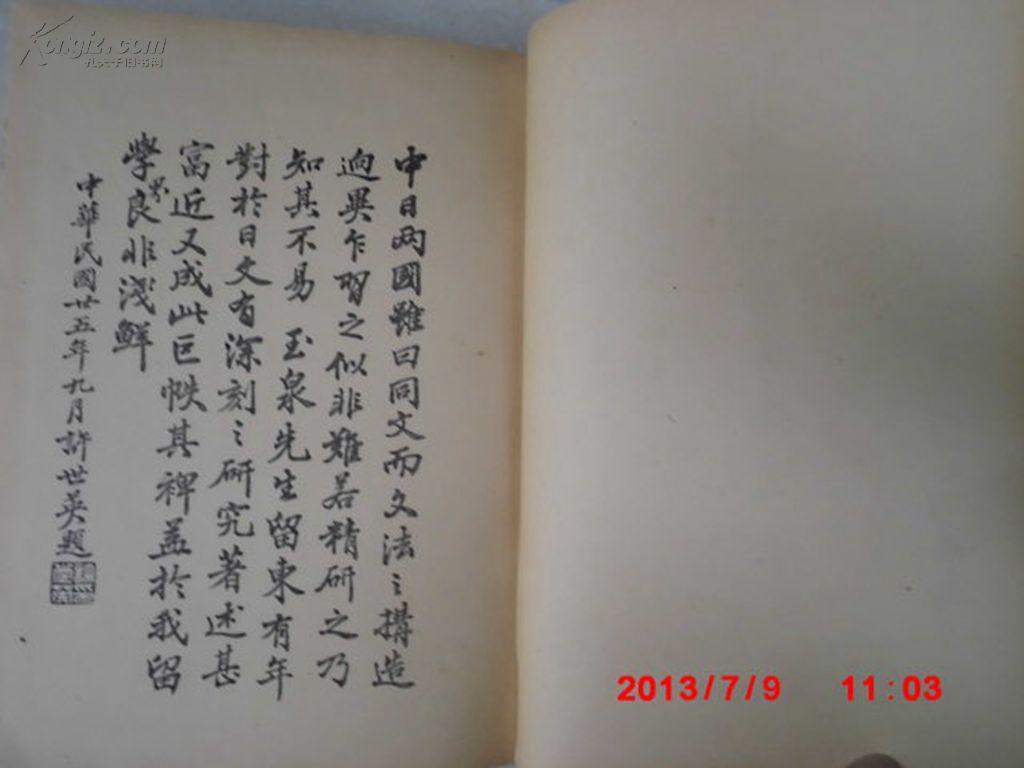 中日兩國雖曰同文而文法之構造
逈異乍習之似非難若精研之乃
知其不易 玉泉先生留東有年
對於日文有深刻之研究著述甚
富近又成此巨帙其裨益於我留
學界良非淺鮮
中華民國廿五年九月許世英題
Kongfz.com
孔夫子旧书网
2013/7/9 11:03